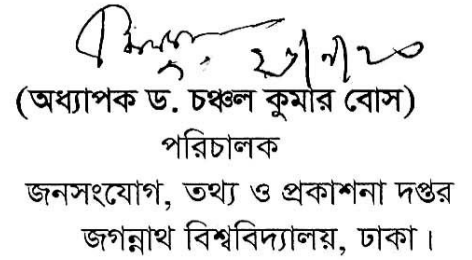 (অধ্যাপক ড. চঞ্চল কুমার বোস)
পরিচালক
জনসংযোগ, তথ্য ও প্রকাশনা দপ্তর
জগন্নাথ বিশ্ববিদ্যালয়, ঢাকা।